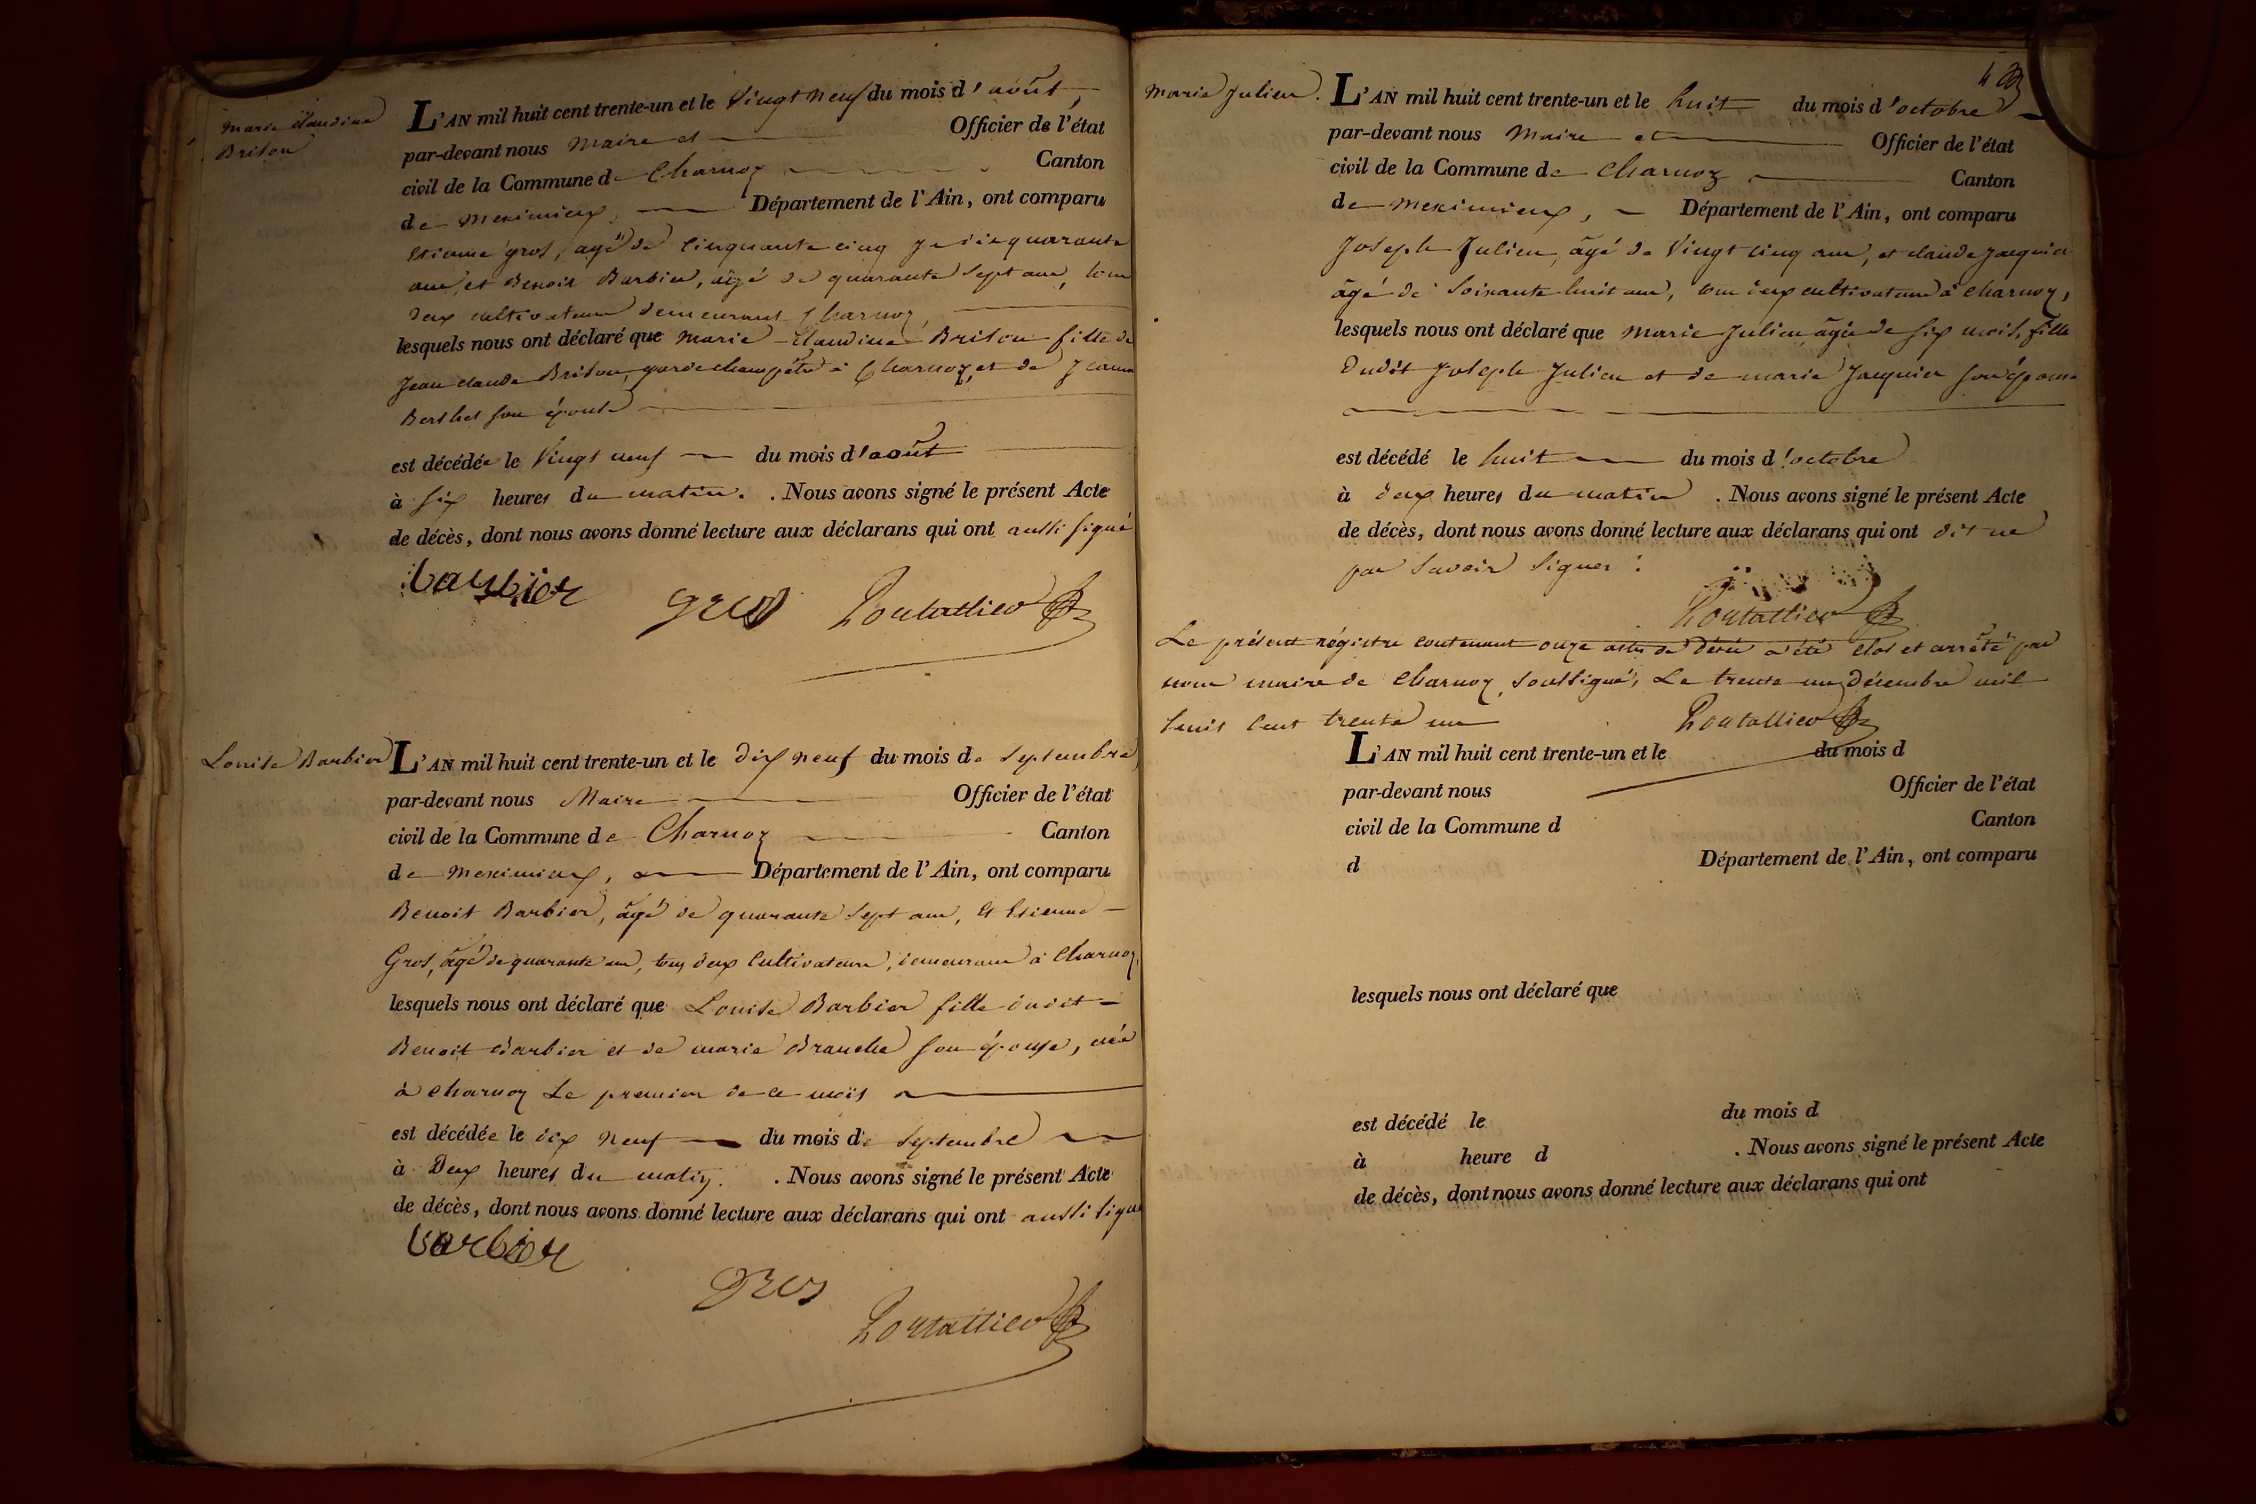 Marie Claudine
Briton
L'AN mil huit cent trente-un et le Vingt neuf du mois d'août,
par-devant nous Maire et Officier de l'état
civil de la Commune de Charnoz Canton
de Meximieux, Département de l'Ain, ont comparu
Etienne Gros, agé de cinquante cinq je dis quarante
ans, et Benoit Barbier, âgé de quarante sept ans, tous
deux cultivateurs demeurant Charnoz,
lesquels nous ont déclaré que Marie Claudine Briton fille de
Jean Claude Briton, garde champêtre à Charnoz, et de Jeanne
Berthet son épouse
est décédée le Vingt neuf du mois d'août
à six heures du matin. . Nous avons signé le présent Acte
de décès, dont nous avons donné lecture aux déclarans qui ont aussi signé
barbier gros
Louise Barbier
L'AN mil huit cent trente-un et le dix neuf du mois de Septembre
par-devant nous Maire Officier de l'état
civil de la Commune de Charnoz Canton
de Meximieux, Département de l'Ain, ont comparu
Benoit Barbier, âgé de quarante sept ans, et Etienne
Gros, âgé de quarante ans, tous deux Cultivateurs, demeurans à Charnoz,
lesquels nous ont déclaré que Louise Barbier fille dudit
Benoit Barbier et de marie Branche son épouse, née
à Charnoz Le premier de ce mois
est décédée le dix neuf du mois de Septembre
à Deux heures du matin. . Nous avons signé le présent Acte
de décès, dont nous avons donné lecture aux déclarans qui ont aussi signé
barbier
gros
4
Marie Julien.
L'AN mil huit cent trente-un et le huit du mois d'octobre
par-devant nous Maire et Officier de l'état
civil de la Commune de Charnoz Canton
de Meximieux, Département de l'Ain, ont comparu
Joseph Julien, âgé de Vingt cinq ans, et claude Jacquier
âgé de Soixante huit ans, tous deux cultivateurs à Charnoz,
lesquels nous ont déclaré que Marie Julien, âgée de six mois, fille
dudit Joseph Julien et de marie Jacquier son épouse
est décédé le huit du mois d'octobre
à deux heures du matin . Nous avons signé le présent Acte
de décès, dont nous avons donné lecture aux déclarans qui ont dit ne
pas Savoir Signer :
Le présent régistre contenant onze actes de décès a été clos et arrêté par
nous maire de Charnoz, soussigné, Le trente un décembre mil
huit Cent trente un
L'AN mil huit cent trente-un et le du mois d
par-devant nous Officier de l'état
civil de la Commune d Canton
d Département de l'Ain, ont comparu
lesquels nous ont déclaré que
est décédé le du mois d
à heure d . Nous avons signé le présent Acte
de décès, dont nous avons donné lecture aux déclarans qui ont